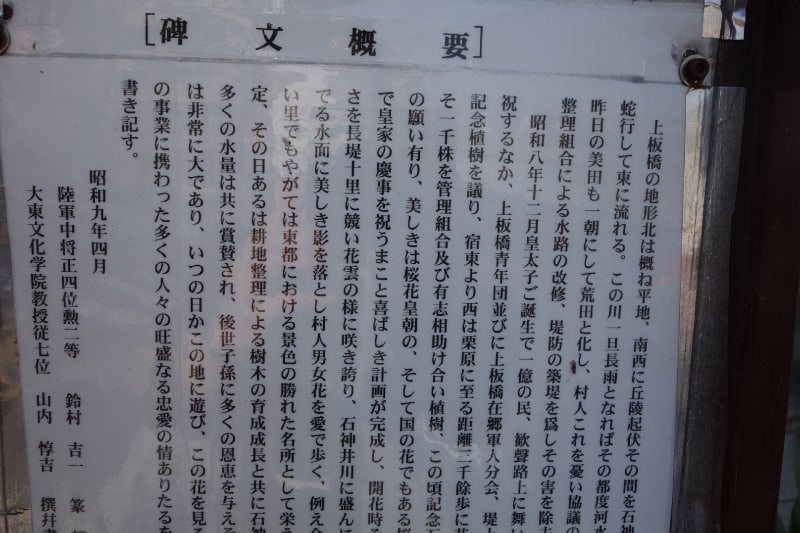 [碑文概要]
上板橋の地形北は概ね平地、南西に丘陵起伏その間を石神
蛇行して東に流れる。この川一旦長雨となればその都度河水
昨日の美田も一朝にして荒田と化し、村人これを憂い協議の
整理組合による水路の改修、堤防の築堤を爲しその害を除去
昭和八年十二月皇太子ご誕生で一億の民、歓聲路上に舞い
祝するなか、上板橋青年団並びに上板橋在郷軍人分会、堤上
記念植樹を議り、宿東より西は栗原に至る距離三千餘歩に
そ一千株を管理組合及び有志相助け合い植樹、この頃記念
の願い有り、美しきは桜花皇朝の、そして国の花でもある桜
で皇家の慶事を祝うまこと喜ばしき計画が完成し、開花時
さを長堤十里に競い花雲の様に咲き誇り、石神井川に盛んに
でる水面に美しき影を落とし村人男女花を愛で歩く、例え
い里でもやがては東都における景色の勝れた名所として栄え
定、その日あるは耕地整理による樹木の育成成長と共に石神
多くの水量は共に賞賛され、後世子孫に多くの恩恵を与える
は非常に大であり、いつの日かこの地に遊び、この花を見る
の事業に携わった多くの人々の旺盛なる忠愛の情ありたるを
書き記す。
昭和九年四月
陸軍中将正四位勲二等 鈴村 吉一 篆
大東文化学院教授従七位 山内 惇吉 撰并書